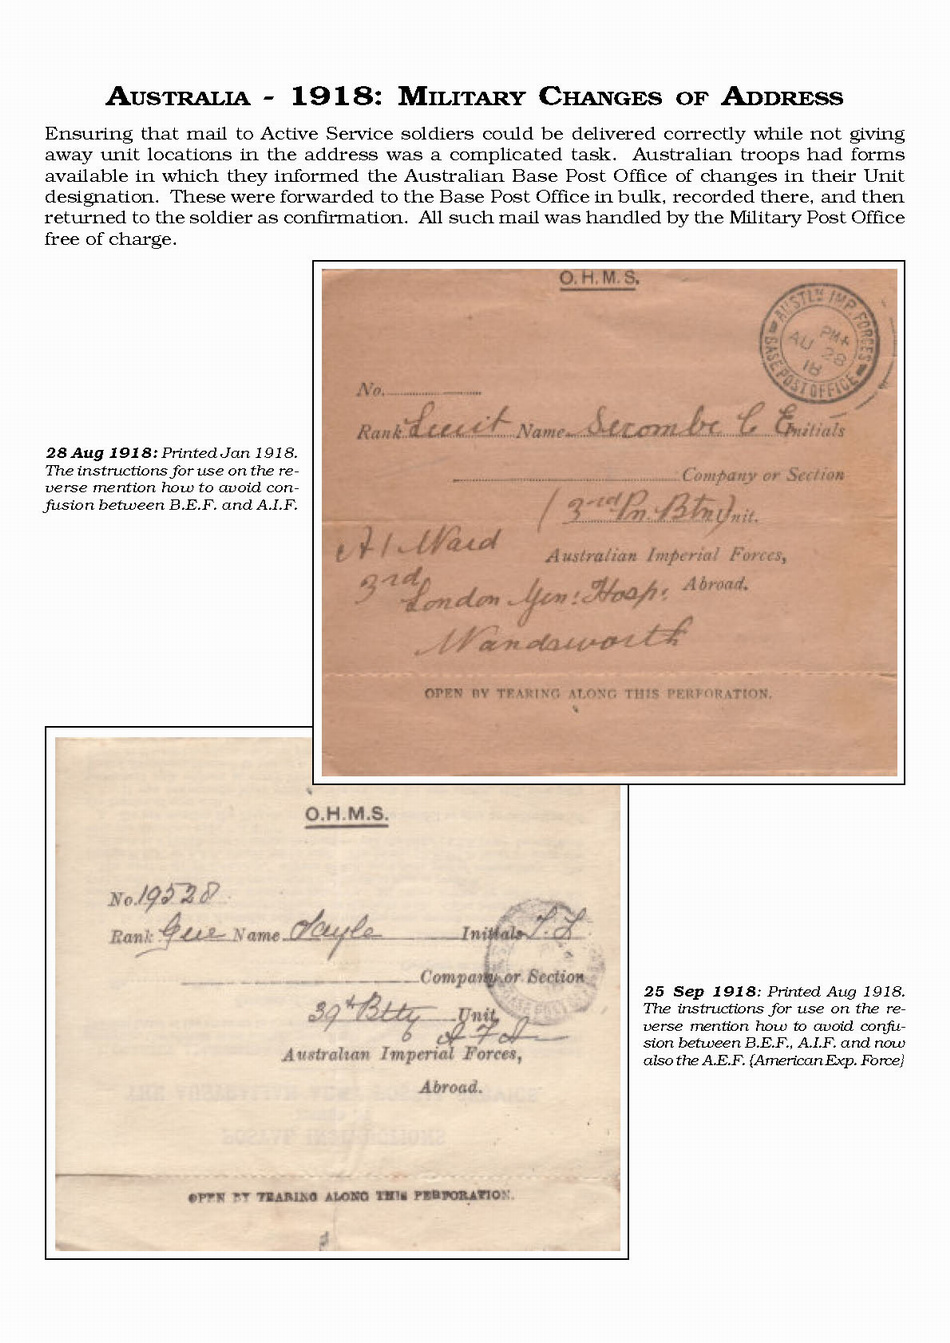 AUSTRALIA - 1918: MILITARY CHANGES OF ADDRESS
Ensuring that mail to Active Service soldiers could be delivered correctly while not giving
away unit locations in the address was a complicated task. Australian troops had forms
available in which they informed the Australian Base Post Office of changes in their Unit
designation. These were forwarded to the Base Post Office in bulk, recorded there, and then
returned to the soldier as confirmation. All such mail was handled by the Military Post Office
free of charge.
O.H.M.S.
AUSTLN IMP. FORCES
PM
AU 28
18
BASE POST OFFICE
No.
Rank Lieut Name Secombe C E Initials
Company or Section
(3rd Pn. Btn) Unit.
A1 Ward
Australian Imperial Forces,
3rd
Abroad.
London Gen: Hosp:
Wandsworth
OPEN BY TEARING ALONG THIS PERFORATION.
28 Aug 1918: Printed Jan 1918.
The instructions for use on the re-
verse mention how to avoid con-
fusion between B.E.F. and A.I.F.
O.H.M.S.
No. 19528
Rank Name Initials
Company or Section
39th Unit
Australian Imperial Forces,
Abroad.
OPEN BY TEARING ALONG THIS PERFORATION.
25 Sep 1918: Printed Aug 1918.
The instructions for use on the re-
verse mention how to avoid confu-
sion between B.E.F., A.I.F. and now
also the A.E.F. (American Exp. Force)